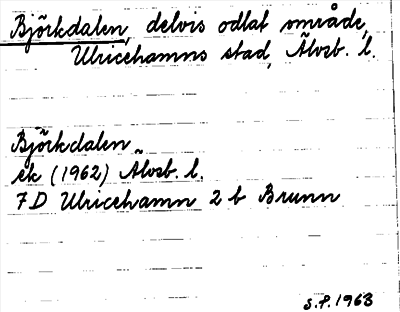 Björkdalen, delvis odlat område,
Ulricehamns stad, Älvsb. l.
Björkdalen
ek (1962) Älvsb. l.
7D Ulricehamn 2 b Brunn
S.P. 1963